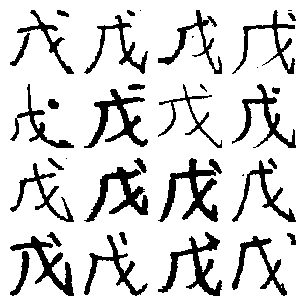 戊戊戊戊
戊戊戊戊
戊戊戊戊
戊戊戊戊